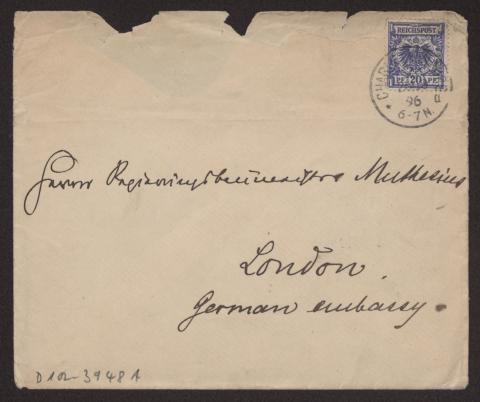 REICHSPOST
20
96
6-7N.
Herrn Regierungsbaumeister Muthesius
London.
German embassy.
D 102-3948 A